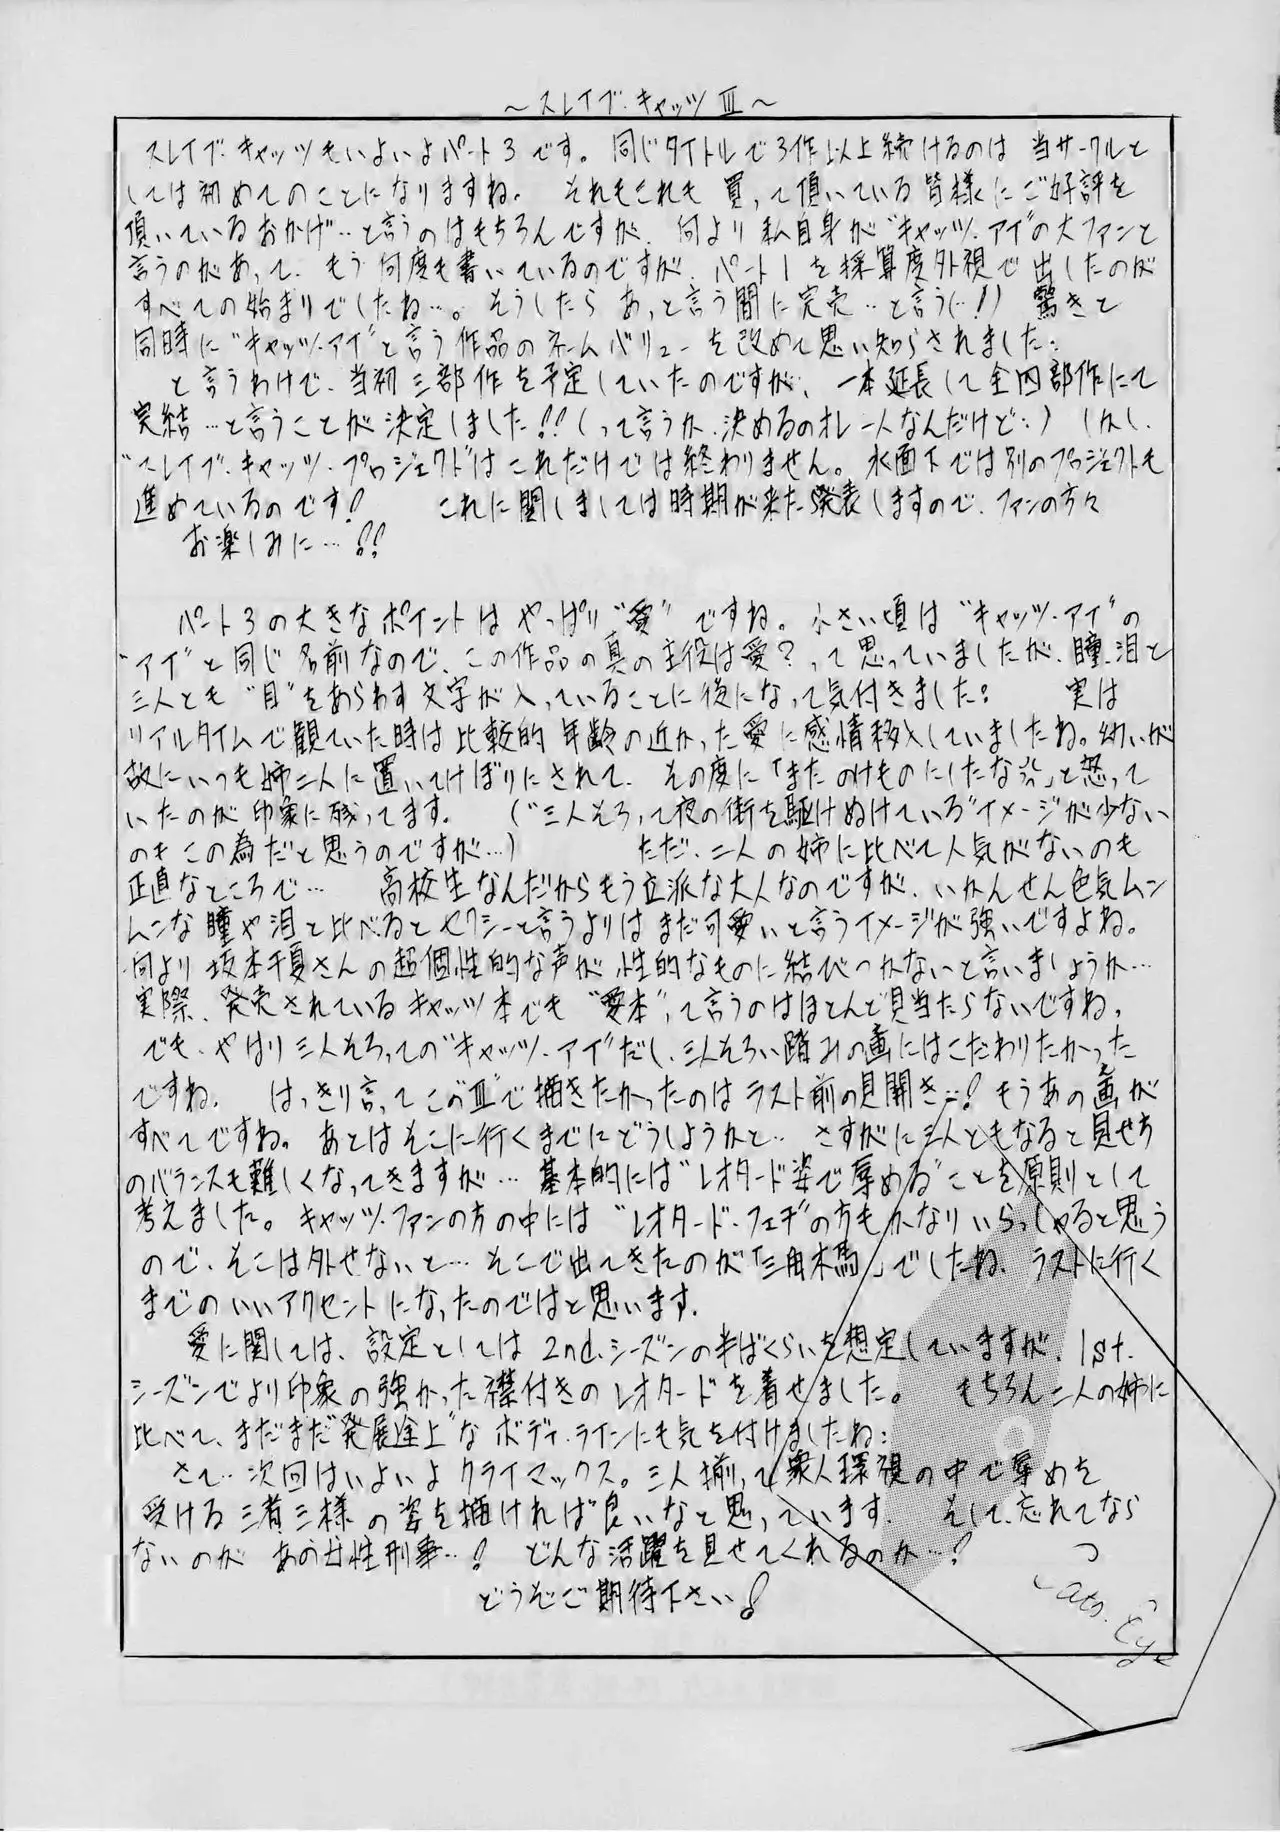 ～スレイブ・キャッツⅢ～
スレイブ・キャッツもいよいよパート3です。同じタイトルで3作以上続けるのは当サークルと
しては初めてのことになりますね。それもこれも買って頂いている皆様にご好評を
頂いているおかげ…と言うのはもちろんですが、何より私自身が“キャッツ・アイ”の大ファンと
言うのがあって、もう何度も書いているのですが、パート1を採算度外視で出したのが
すべての始まりでしたね…。そうしたらあっと言う間に完売…と言う(…!!) 驚きと
同時に“キャッツ・アイ”と言う作品のネームバリューを改めて思い知らされました…
と言うわけで、当初三部作を予定していたのですが、一本延長して全四部作にて
完結…と言うことが決定しました!!(って言うか、決めるのオレ一人なんだけど…) しかし、
“スレイブ・キャッツ・プロジェクト”はこれだけでは終わりません。水面下では別のプロジェクトも
進めているのです! これに関しましては時期が来たら発表しますので、ファンの方々
お楽しみに…!!
パート3の大きなポイントはやっぱり“愛”ですね。小さい頃は“キャッツ・アイ”の
“アイ”と同じ名前なので、この作品の真の主役は愛?って思っていましたが、瞳、泪と
三人とも“目”をあらわす文字が入っていることに後になって気付きました… 実は
リアルタイムで観ていた時は比較的年齢の近かった愛に感情移入していましたね。幼いが
故にいつも姉二人に置いてけぼりにされて、その度に「またのけものにしたな」と怒って
いたのが印象に残ってます。(“三人そろって夜の街を駆けぬけている”イメージが少ない
のもこの為だと思うのですが…) ただ、二人の姉に比べて人気がないのも
正直なところで… 高校生なんだからもう立派な大人なのですが、いかんせん色気ムン
ムンな瞳や泪と比べるとセクシーと言うよりはまだ可愛いと言うイメージが強いですよね。
何より坂本千夏さんの超個性的な声が性的なものに結びつかないと言いましょうか…
実際、発売されているキャッツ本でも“愛本”って言うのはほとんど見当たらないですね。
でも、やはり三人そろっての“キャッツ・アイ”だし、三人そろい踏みの画にはこだわりたかった
ですね。はっきり言ってこの“Ⅲ”で描きたかったのはラスト前の見開き…!もうあの画が
すべてですね。あとはそこに行くまでにどうしようかと… さすがに三人ともなると見せ方
のバランスも難しくなってきますが… 基本的には“レオタード姿で辱める”ことを原則として
考えました。キャッツ・ファンの方の中には“レオタード・フェチ”の方もかなりいらっしゃると思う
ので、そこは外せないと… そこで出てきたのが「三角木馬」でしたね。ラストに行く
までのいいアクセントになったのではと思います。
愛に関しては、設定としては2nd.シーズンの半ばくらいを想定していますが、1st.
シーズンでより印象の強かった襟付きのレオタードを着せました。もちろん二人の姉に
比べて、まだまだ“発展途上”なボディ・ラインにも気を付けましたね…
さて… 次回はいよいよクライマックス。三人揃って衆人環視の中で辱めを
受ける三者三様の姿を描ければ良いなと思っています。そして、忘れてなら
ないのがあの女性刑事…! どんな活躍を見せてくれるのか…?
どうぞご期待下さい!
Cats. Eye